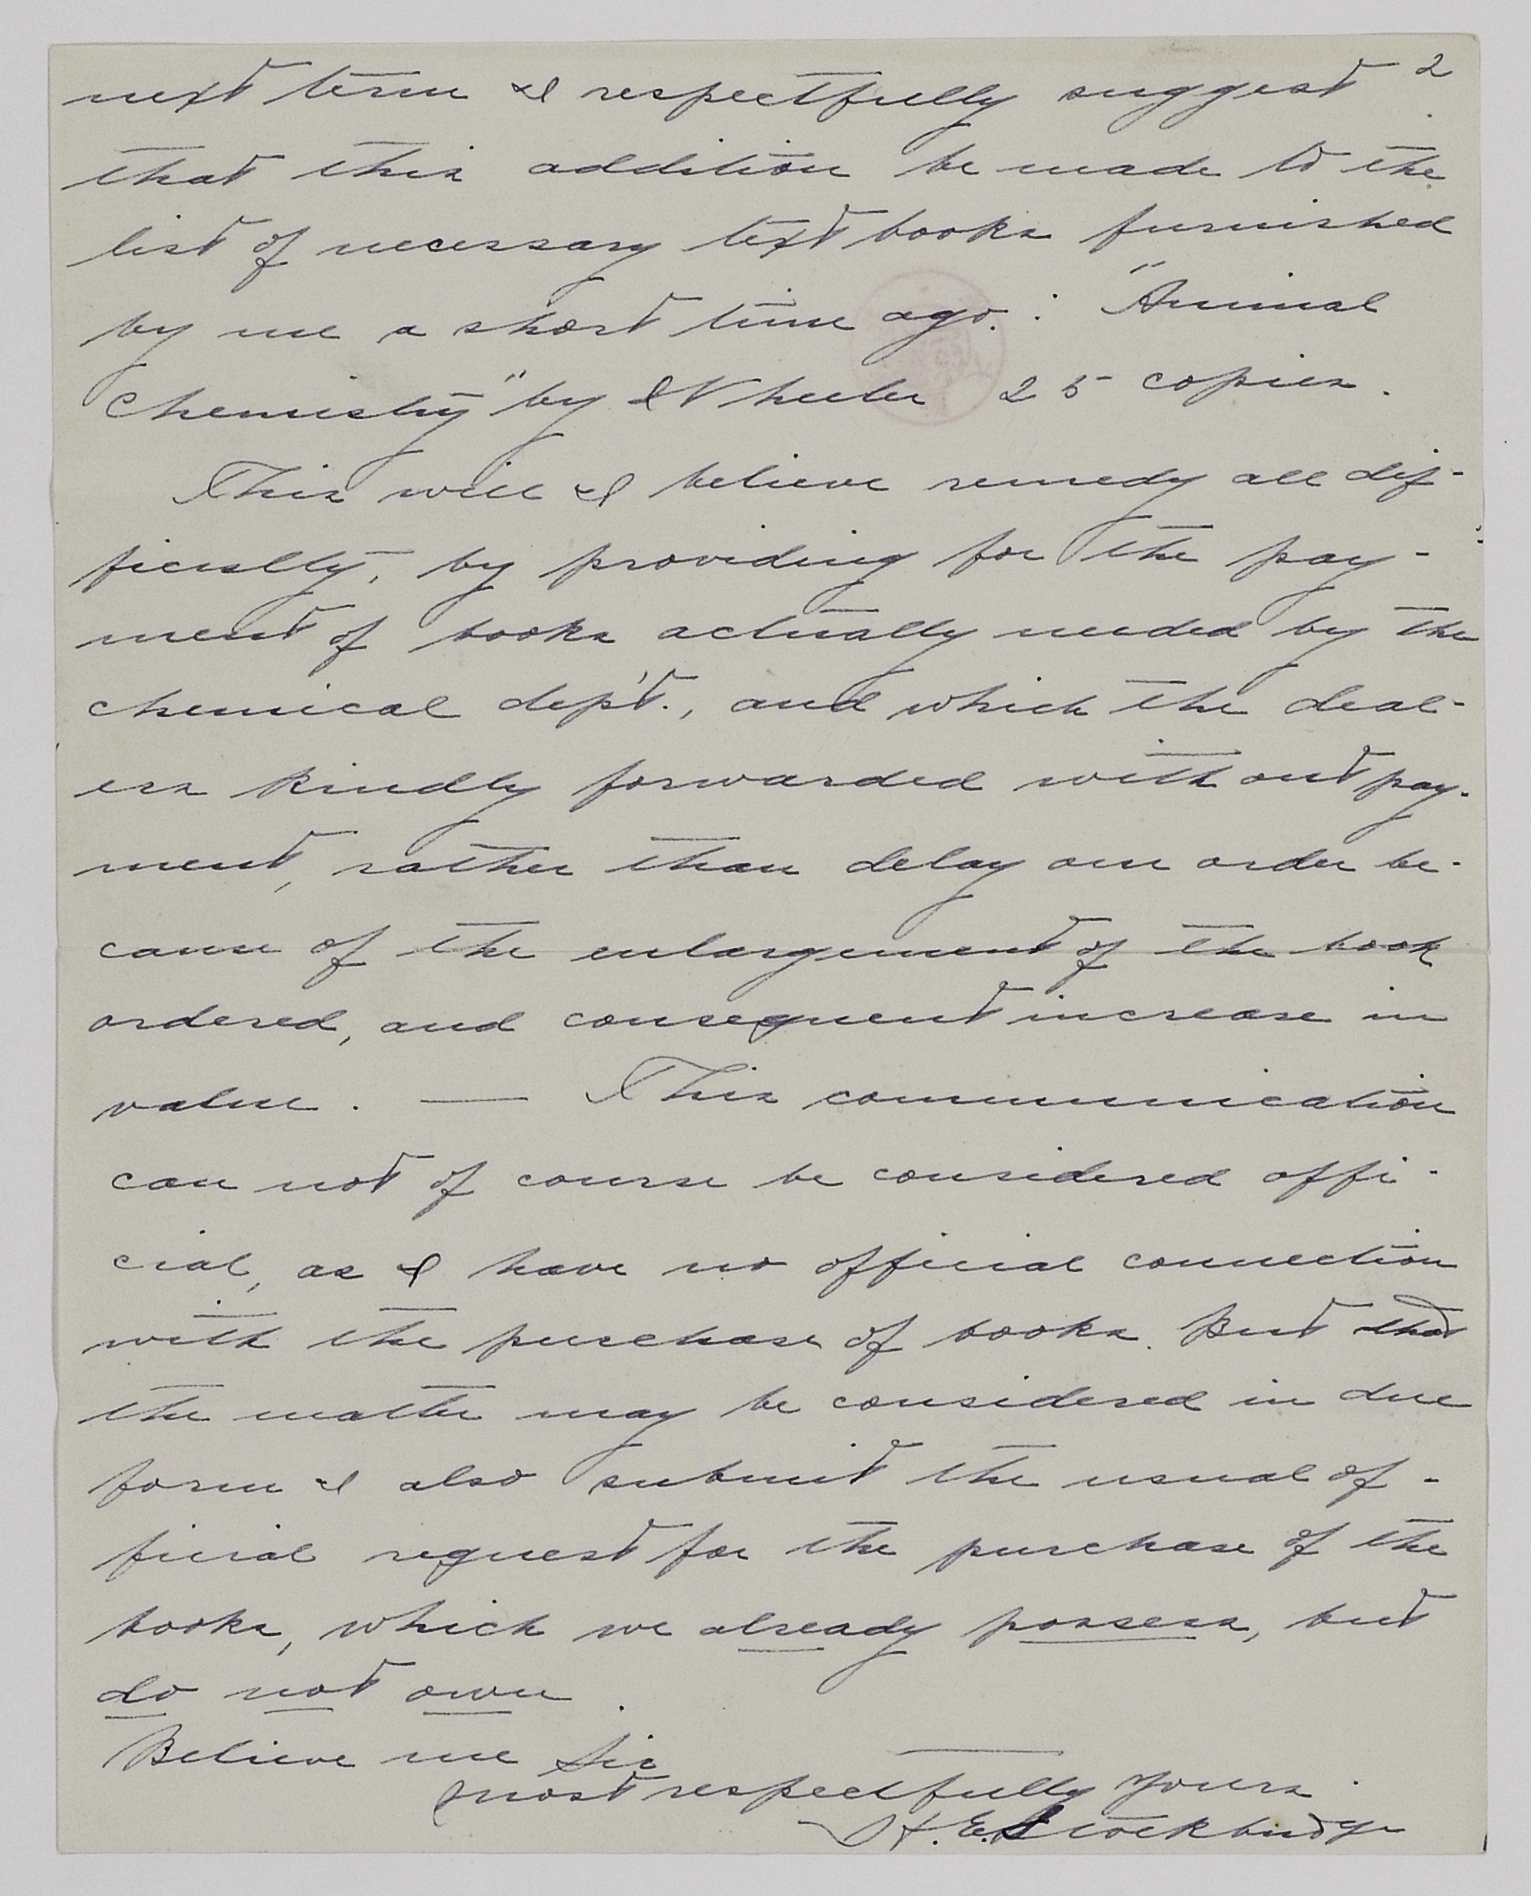 2
next term I respectfully suggest
that this addition be made to the
list of necessary text books furnished
by me a short time ago. : "Animal
Chemistry" by Wheeler 25 copies.
This will I believe remedy all dif-
ficully, by providing for the pay-
ment of books actually needed by the
chemical dep't., and which the deal-
ers kindly forwarded without pay-
ment, rather than delay our order be-
cause of the enlargement of the book
ordered, and consequent increase in
value. — This communication
can not of course be considered offi-
cial, as I have no official connection
with the purchase of books. But that
the matter may be considered in due
form I also submit the usual of-
ficial request for the purchase of the
books, which we already possess, but
do not own.
Believe me Sir
most respectfully yours.
H. E. Stockbridge